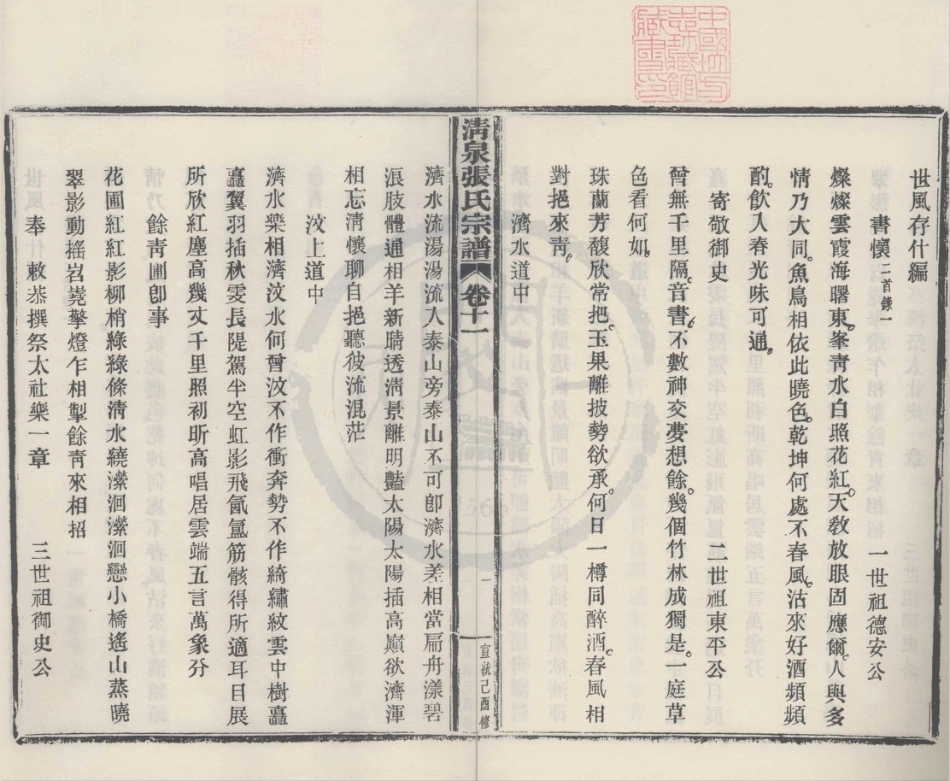 世風存什編
書懷二首錄一　一世祖德安公
燦燦雲霞海曙東峯靑水白照花紅天敎放眼固應爾人與多
情乃大同魚鳥相依此曉色乾坤何處不春風沽來好酒頻頻
酌飮入春光味可通
寄敬御史　二世祖東平公
曾無千里隔音書不數神交夢想餘幾個竹林成獨是一庭草
色看何如
珠蘭芳馥欣常把玉果離披勢欲承何日一樽同醉酒春風相
對挹來靑
濟水道中
濟水流湯湯流入泰山旁泰山不可卽濟水差相當扁舟漾碧
浪肢體通相羊新晴透淸景離明豔太陽太陽插高巓欲濟渾
相忘淸懷聊自挹聽彼流混茫
汶上道中
濟水樂相濟汶水何曾汶不作衝奔勢不作綺繡紋雲中樹矗
矗翼羽插秋雯長隄駕半空虹影飛氤氳筋骸得所適耳目展
所欣紅塵高幾丈千里照初昕高唱居雲端五言萬象分
餘靑圃卽事
花圃紅紅影柳梢綠綠條淸水繞瀠洄瀠洄戀小橋遙山蒸曉
翠影動搖岧嶤擎燈乍相掣餘靑來相招
奉　敕恭撰祭太社樂一章　三世祖御史公
淸泉張氏宗譜　卷十一
一
宣統己酉修